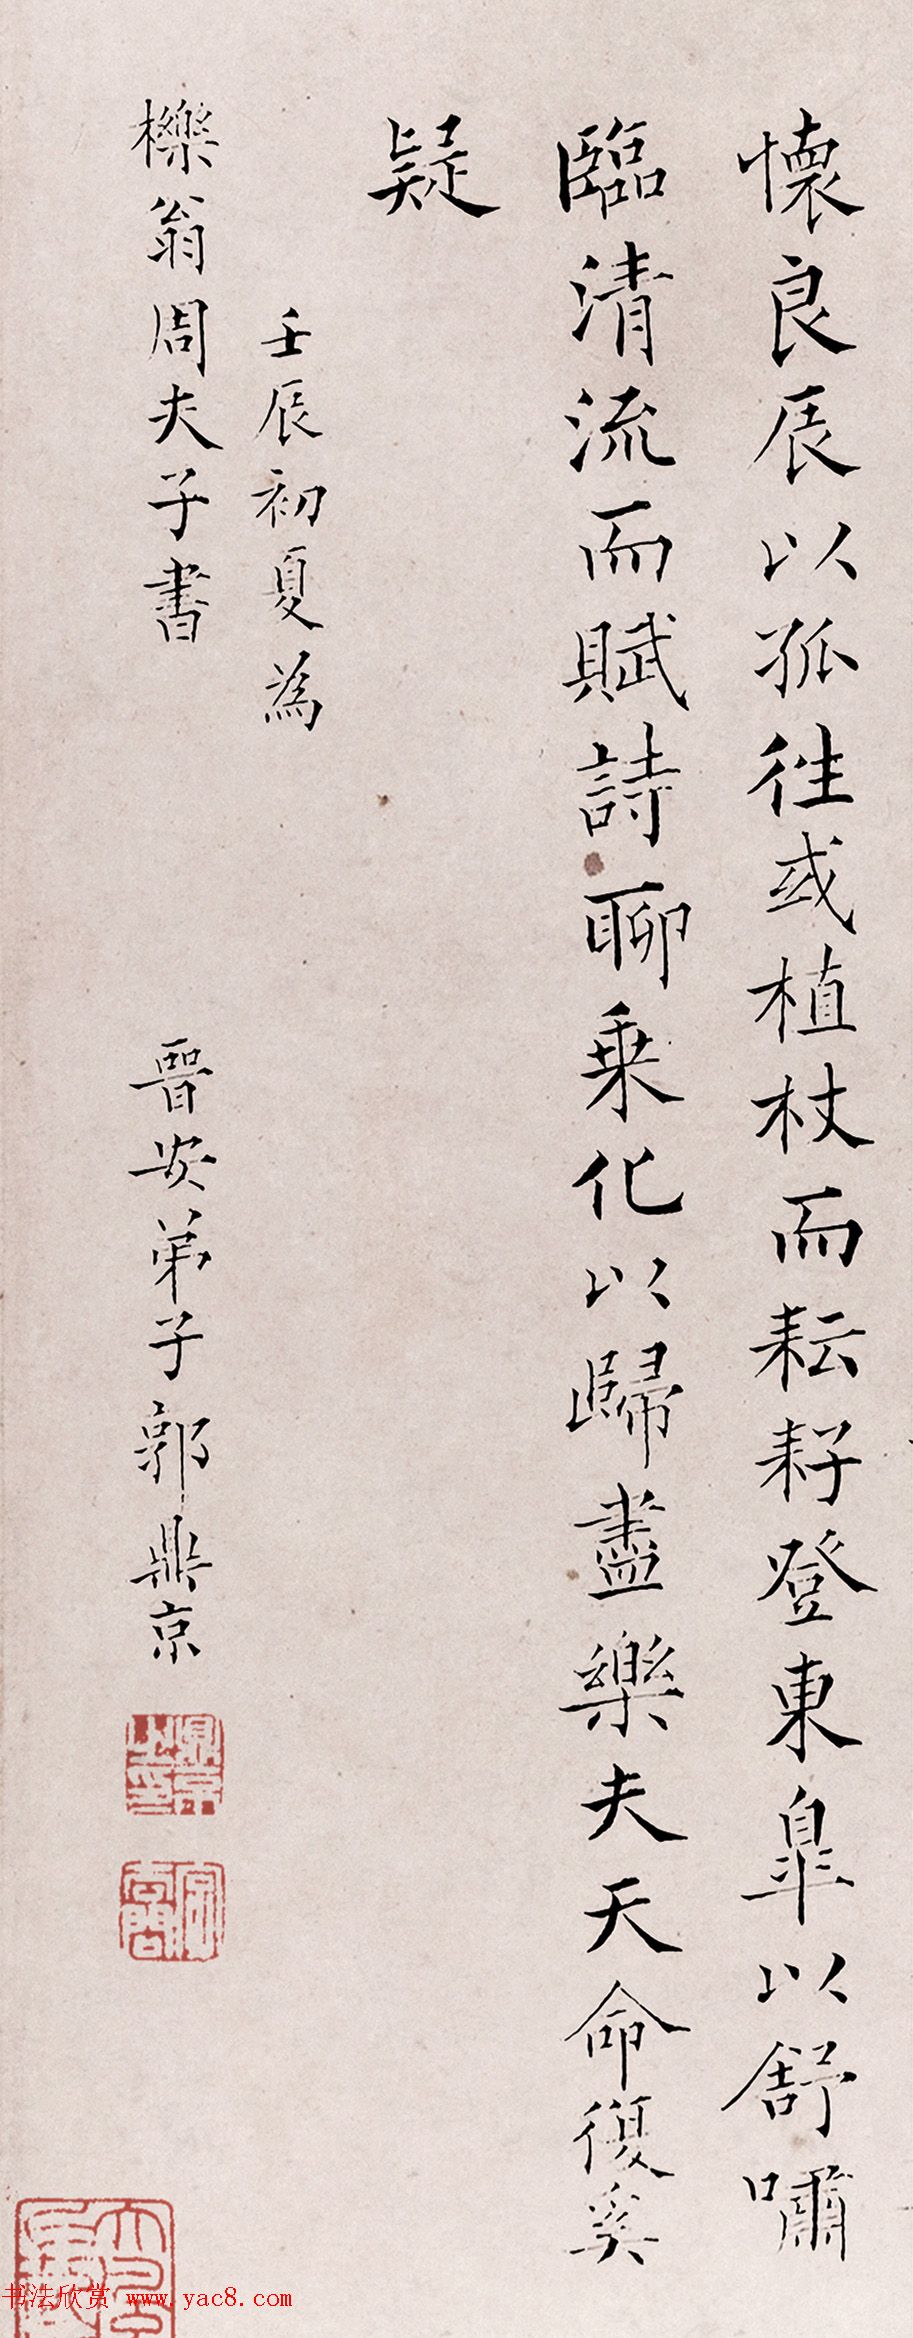 懷良辰以孤往或植杖而耘耔登東臯以舒嘯
臨清流而賦詩聊乗化以歸盡樂夫天命復奚
疑
壬辰初夏為
櫟翁周夫子書
晉安弟子郭鼎京
鼎京之印
书法欣赏 www.yac8.com